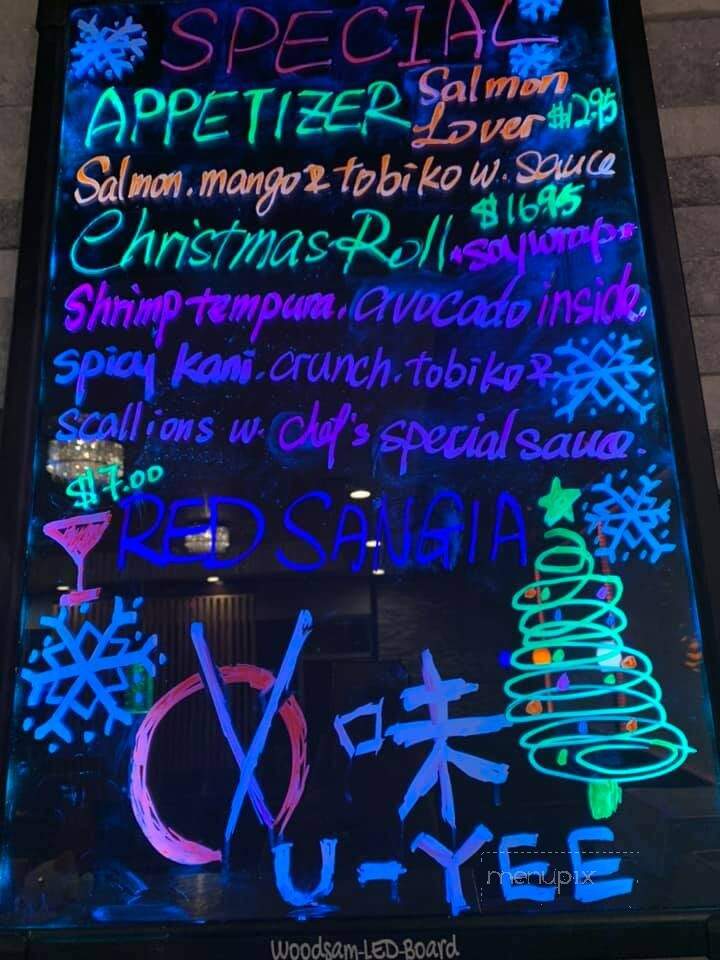 SPECIAL
APPETIZER Salmon Lover $12.95
Salmon. mango & tobiko w. sauce
$16.95
Christmas Roll *soy wrap*
Shrimp tempura. avocado inside.
spicy kani. crunch. tobiko &
scallions w. chef's special sauce.
$7.00
RED SANGIA
味
U-YEE
menupix
Woodsam-LED-Board